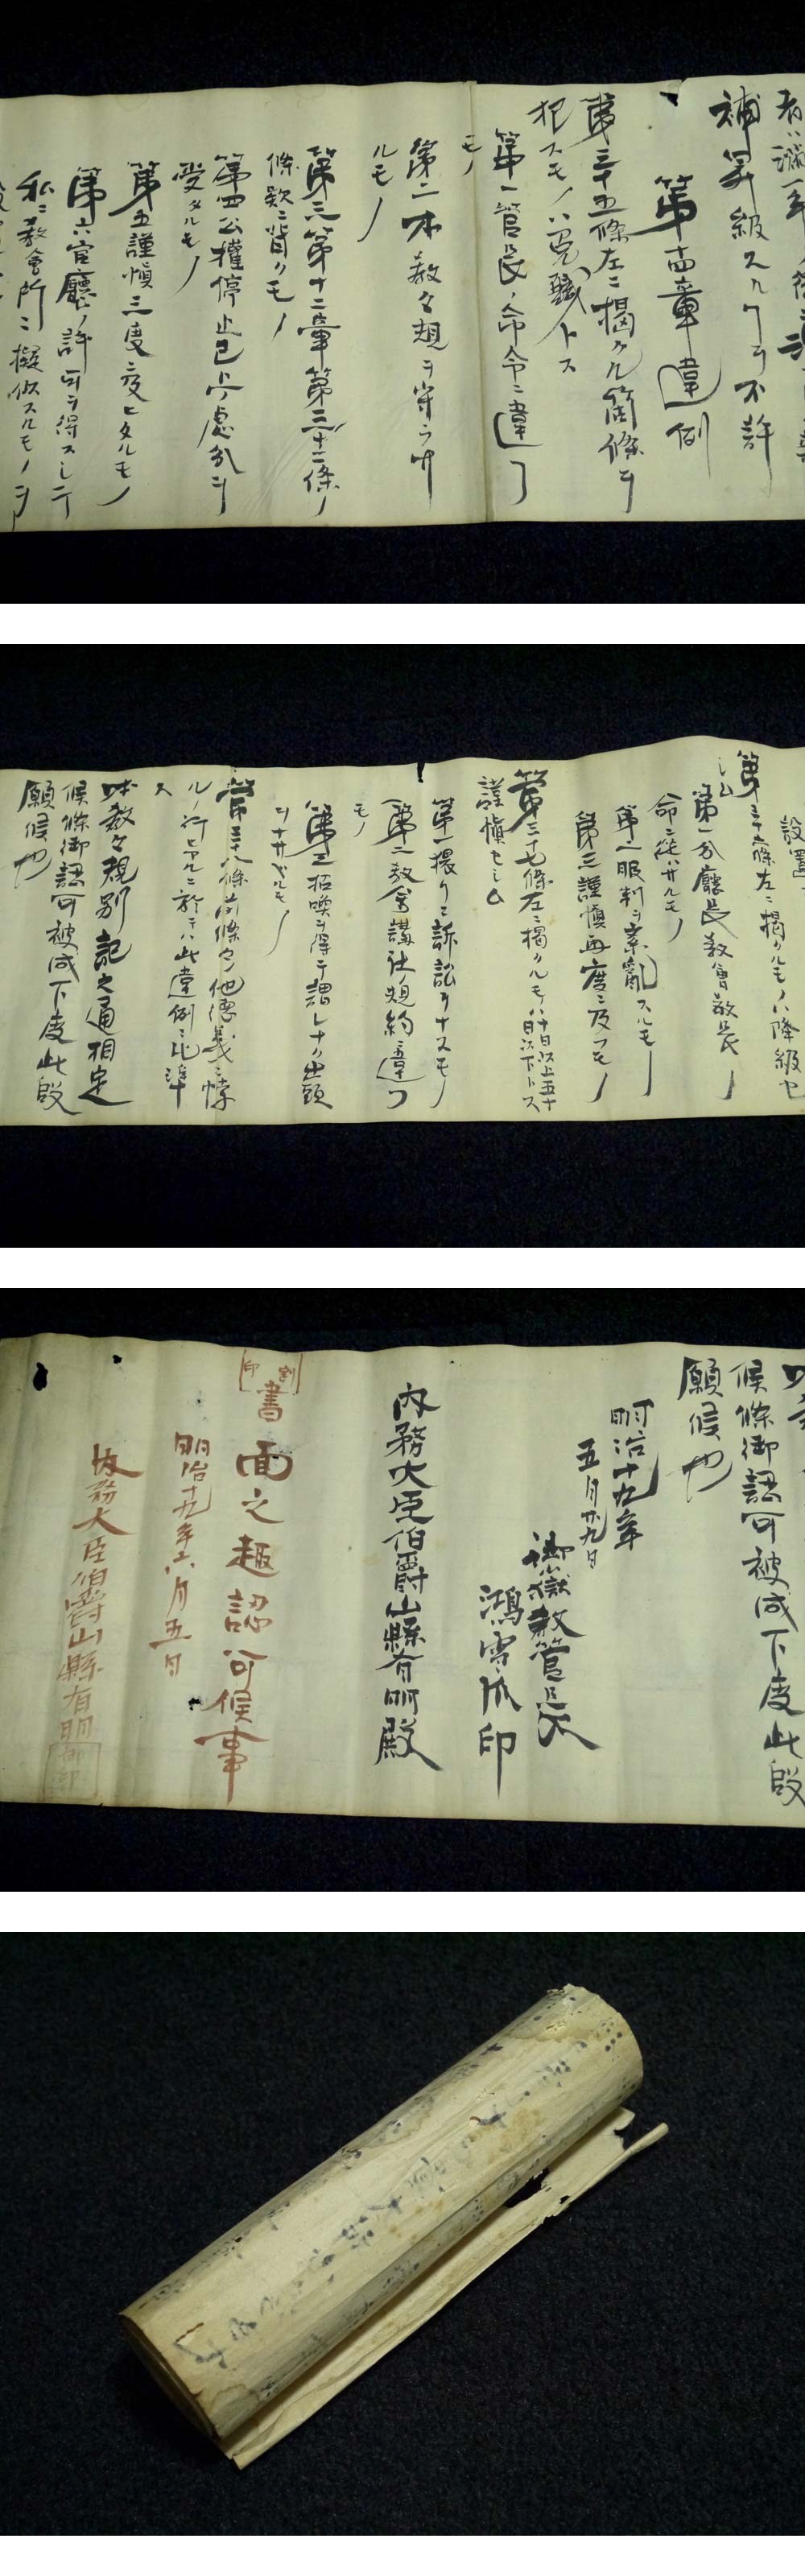 補昇級スルヿヲ不許
第十四章 違例
第三十五條左ニ掲クル箇條ヲ
犯スモノハ免職トス
第一管長ノ命令ニ違フ
モノ
第二本教々規ヲ守ラサ
ルモノ
第三第十二章第三十二條ノ
條欵ニ背クモノ
第四公權停止已上ノ處分ヲ
受タルモノ
第五謹愼三度ニ及ヒタルモノ
第六官廳ノ許可ヲ得スシテ
私ニ教會所ニ擬似スルモノヲ
設置
第三十六條左ニ掲クルモノハ降級セ
シム
第一分廳長教會教長ノ
命ニ從ハサルモノ
第二服制ヲ紊亂スルモノ
第三謹愼再度ニ及フモノ
第三十七條左ニ掲クルモノハ十日以上五十
日以下トス
謹愼セシム
第一猥リニ訴訟ヲナスモノ
第二教會講社ノ規約ニ違フ
モノ
第三招喚ヲ得テ謂レナク出頭
ヲナサヾルモノ
第三十八條前條ノ他德義ニ悖
ルノ行ヒアルニ於テハ此違例ニ比準
ス
御嶽教管長
鴻雪爪印
明治十九年
五月廿九日
内務大臣伯爵山縣有朋殿
割印
書面之趣認可候事
明治十九年六月五日
内務大臣伯爵山縣有朋 御印